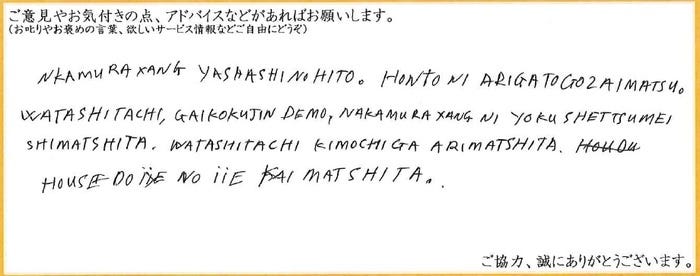 ご意見やお気付きの点、アドバイスなどがあればお願いします。
(お叱りやお褒めの言葉、欲しいサービス情報などご自由にどうぞ)
NKAMURAXANG YASHASHINOHITO。HONTO NI ARIGATOGOZAIMATSU。
WATASHITACHI, GAIKOKUJIN DEMO, NAKAMURAXANG NI YOKU SHETTSUMEI
SHIMATSHITA. WATASHITACHI KIMOCHI GA ARIMATSHITA.
HOUSE DO NO iiE KAI MATSHITA..
ご協力、誠にありがとうございます。